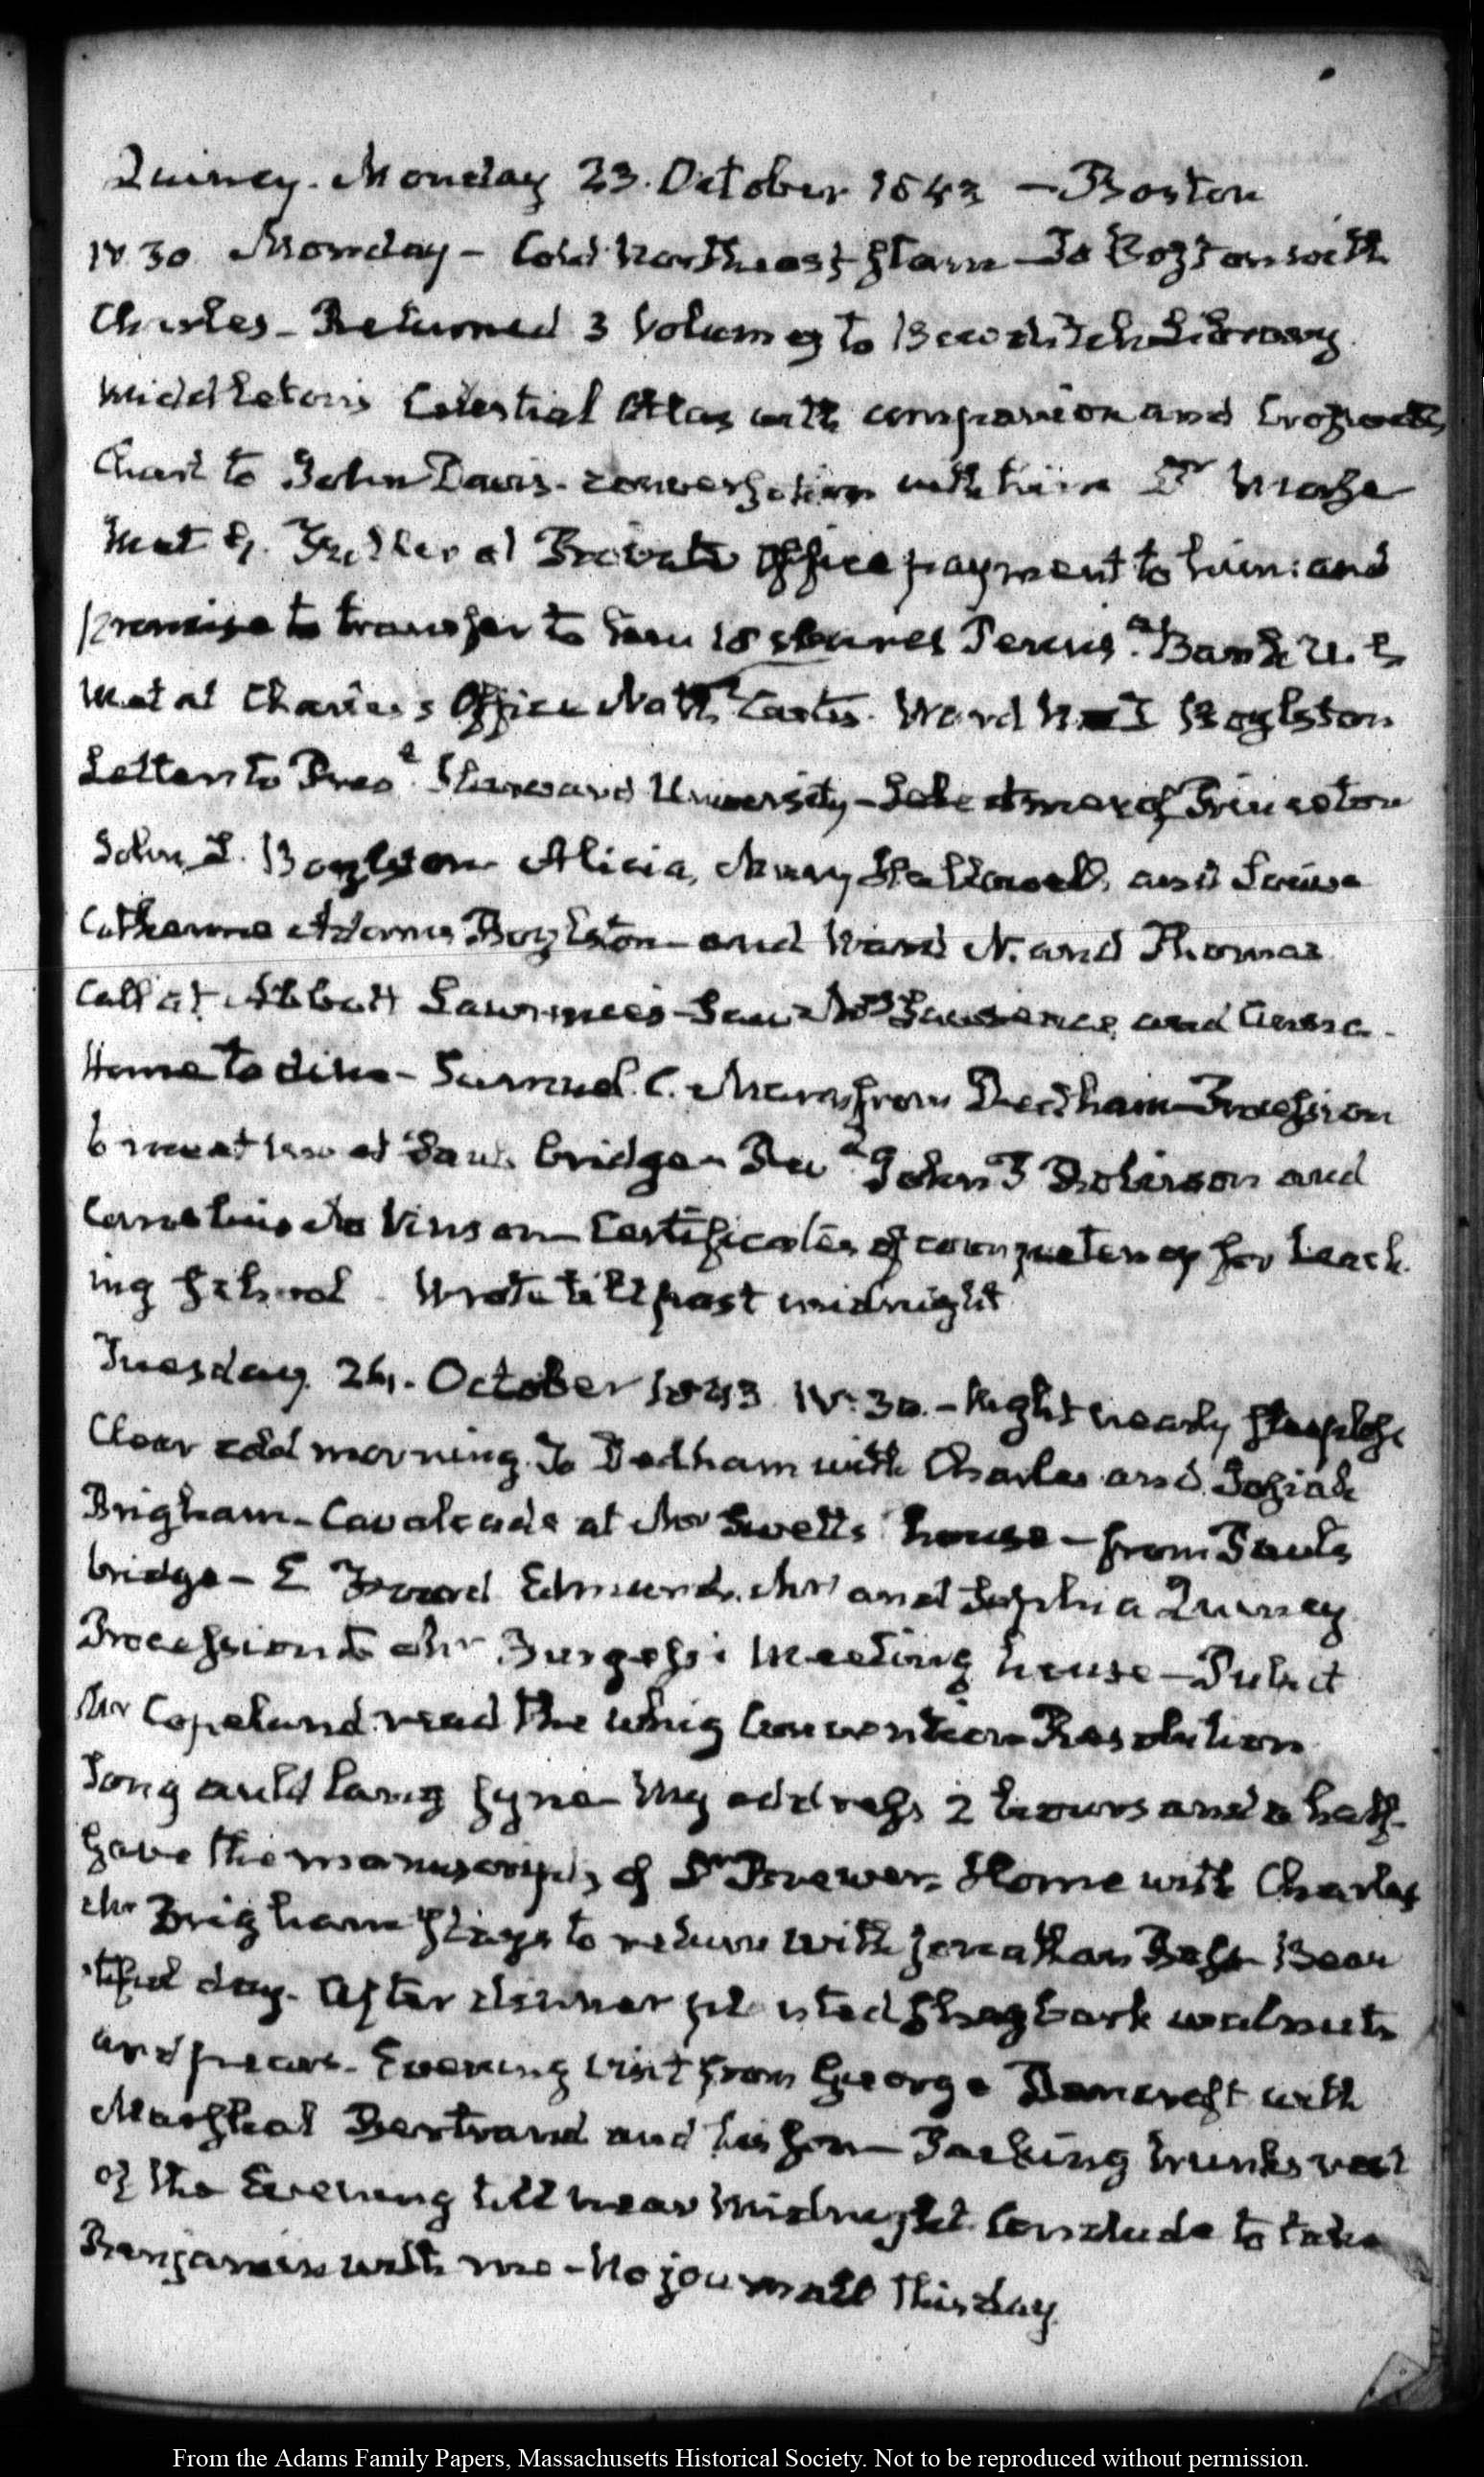 Quincy. Monday 23. October 1843 — Boston
IV. 30 Monday - Cold Northeast storm - To Boston with
Charles - Returned 3 Volumes to Bowditch Library
Middleton's Celestial Atlas with companion and
Chart to John Davis - conversation with him Dr
Met Fuller at Probate Office payment to him and
promise to transfer to him 18 shares Bank U. S
Met at Charles's Office Nath.l Ward N. Boylston
Letter to Presd.t Harvard University - Selectmen of Princeton
John L. Boylston Alicia, Mary Hallowell, and Louisa
Catherine Adams Boylston - and Ward N. and Thomas
Call at Abbott Lawrence's - Saw Mrs Lawrence and
Home to dine - Samuel C. Mann from Dedham - Procession
to meet me at Paul's bridge - John Robinson and
Vinson - Certificates of competency for teach
ing school - Wrote till past midnight
Tuesday 24. October 1843. IV. 30. - Night nearly sleepless
Clear cold morning. To Dedham with Charles and Josiah
Brigham - Cavalcade at Mr Swett's house - from Paul's
bridge - E Edmund, Mrs and Sophia Quincy
Procession to Mr Burgess's Meeting house - Pulpit
Mr Copeland read the Whig Convention Resolution
Song auld lang syne - My address 2 hours and a half -
Gave the manuscripts of Brewer. Home with Charles
Mr Brigham stays to return with Jonathan Bass Beau
tiful day. After dinner planted shagbark walnuts
and pears. Evening visit from George Bancroft with
Marshal Bertrand and his son - Packing trunks rest
of the Evening till near Midnight. Conclude to take
Benjamin with me - No journal this day